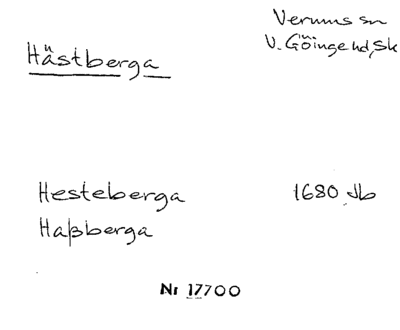 Verums sn
V. Göinge hd, Sk
Hästberga
Hesteberga 1680 Jb
Haßberga
Nr 17700